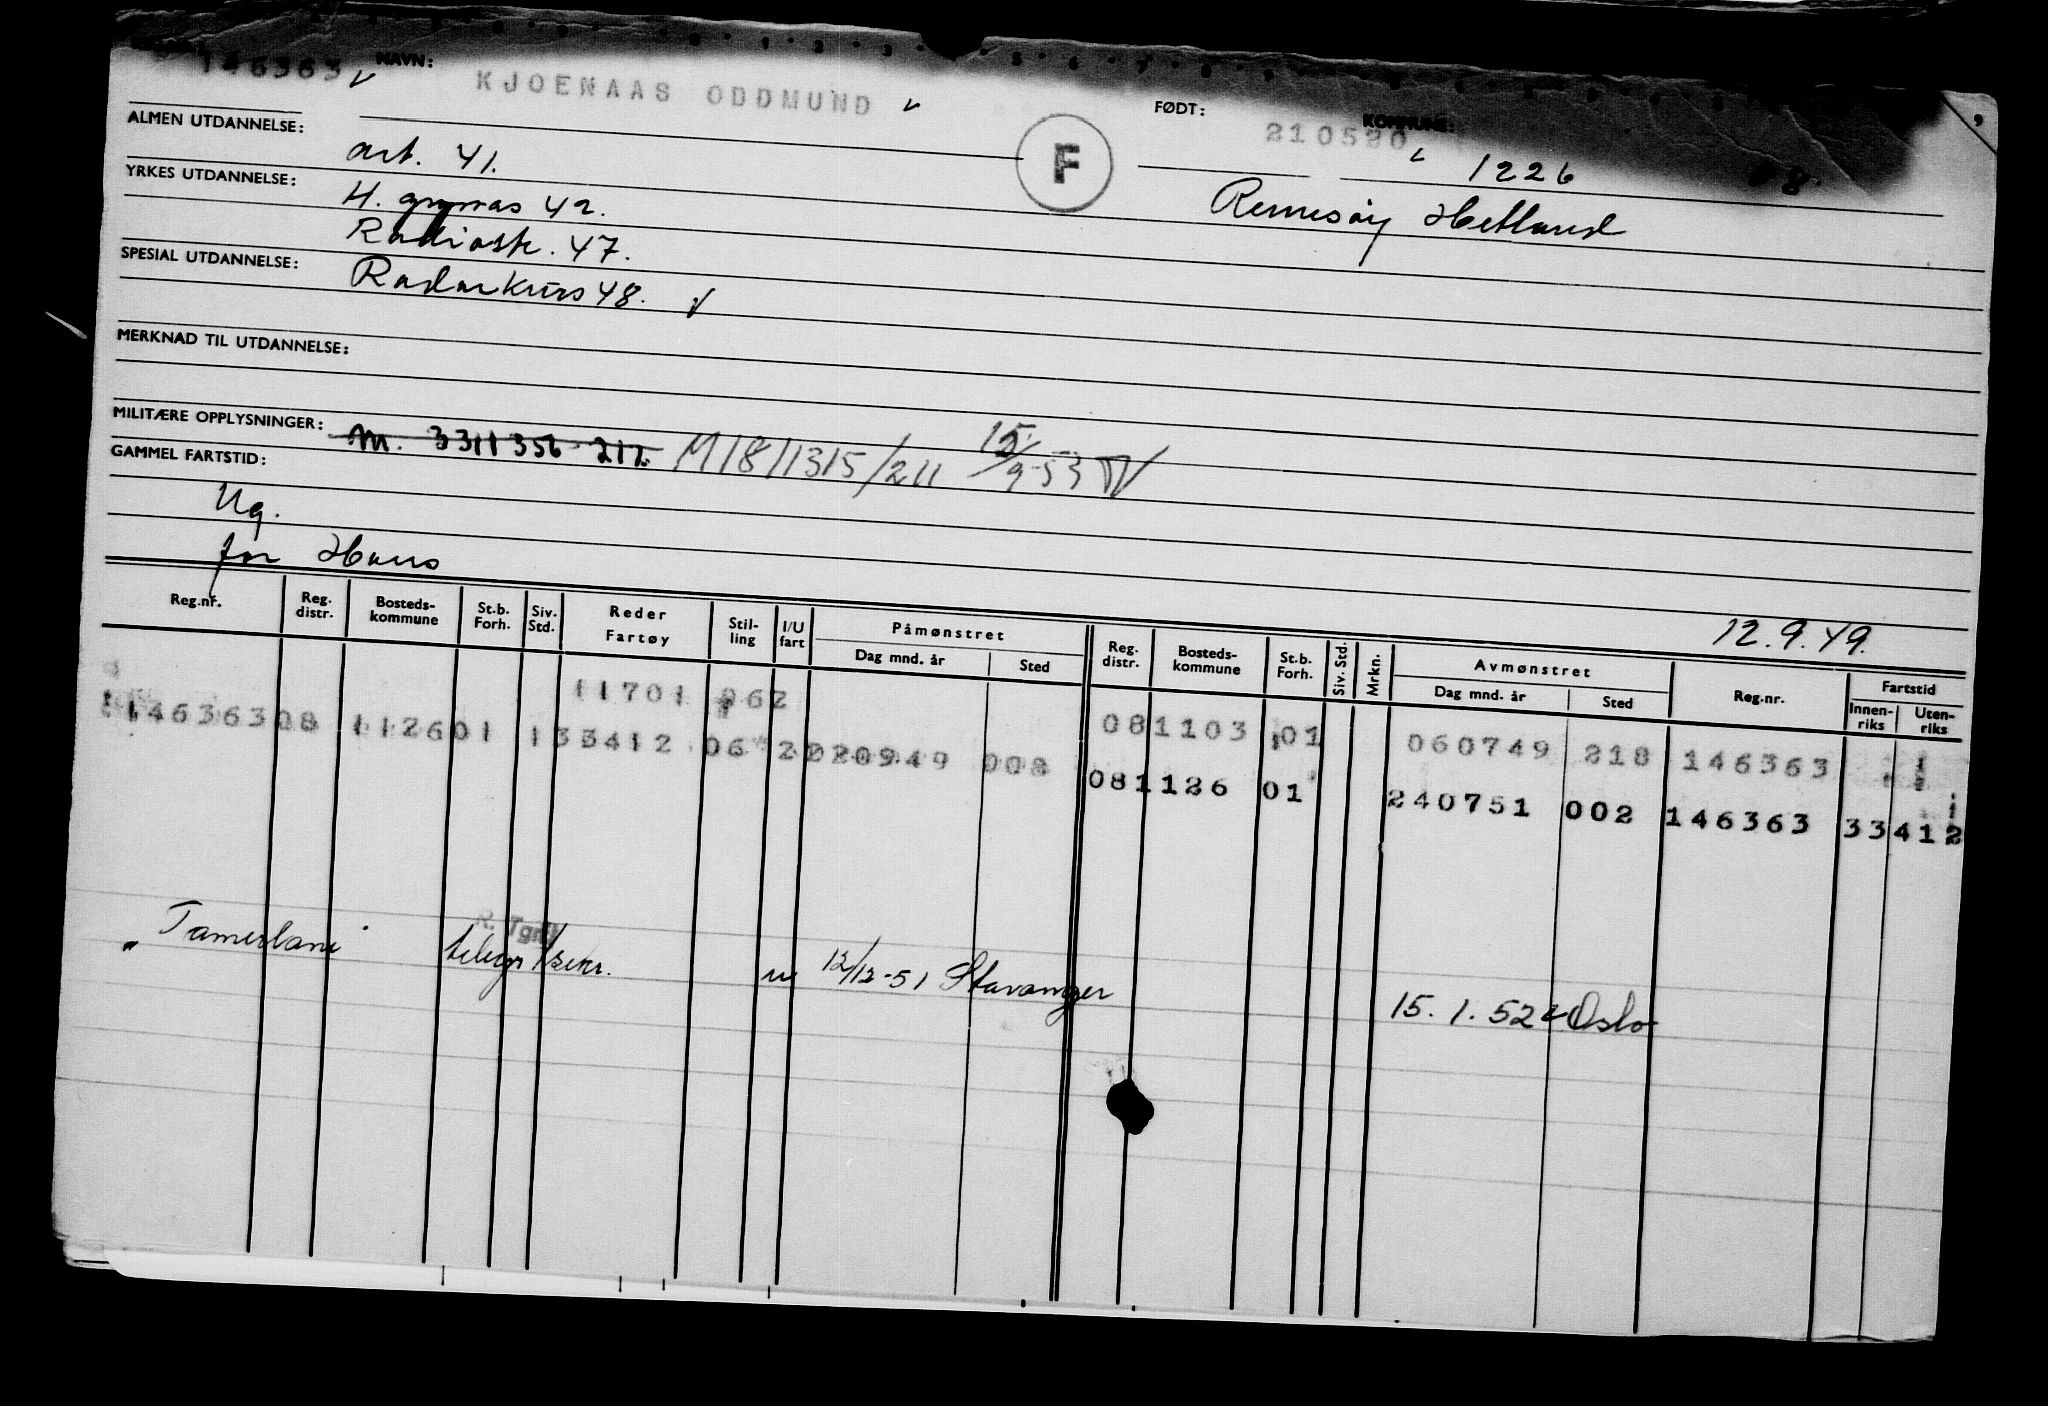 146363 NAVN: KJOENAAS ODDMUND FØDT: 210520 KOMMUNE: 1226
ALMEN UTDANNELSE: art. 41. F
YRKES UTDANNELSE: H. gymnas 42. Rennesøy Hetland
Radiosk. 47.
SPESIAL UTDANNELSE: Radarkurs 48.
MERKNAD TIL UTDANNELSE:
MILITÆRE OPPLYSNINGER: M. 3311356 212. M/8/1315/211 15/9-53
GAMMEL FARTSTID:
Ug.
far Hans
12.9.49.
Reg.nr. Reg. distr. Bosteds-kommune St.b. Forh. Siv. Std. Reder Fartøy Stil-ling I/U fart Påmønstret Dag mnd. år Sted Reg. distr. Bosteds-kommune St.b. Forh. Siv. Std. Mrkn. Avmønstret Dag mnd. år Sted Reg.nr. Fartstid Innen-riks Uten-riks
11701 062 081103 01 060749 218 146363
146363 08 1126 01 1 33412 06 2 020949 008 081126 01 240751 002 146363 33412
R. Tgr
"Tamerlane" telegr/sekr. u 12/12-51 Stavanger 15.1.52 Oslo